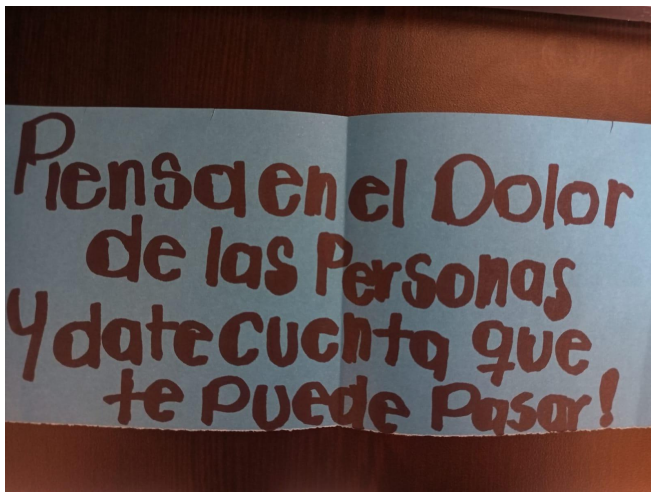 Piensa en el Dolor
de las Personas
y date cuenta que
te puede Pasar!